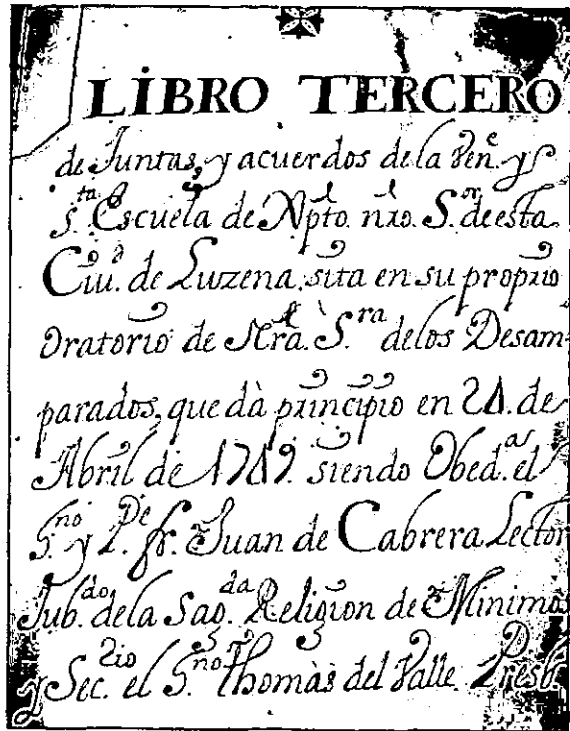 LIBRO TERCERO
de Juntas, y acuerdos dela Ven.e y
S.ta Escuela de Xpto. nro. S.or de esta
Ciu.d de Luzena, sita en su proprio
Oratorio de Nra. S.ra delos Desam-
parados, que dà principio en 24. de
Abril de 1749. siendo Obed.as el
P.e fr. Juan de Cabrera Lector
Jub.do dela Sag.da Religion de Minimos
y Sec.rio el Thomàs del Valle Presb.